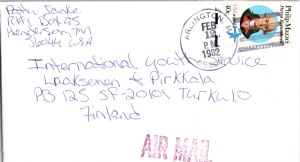 Rt 1 Box 95
Henderson, MN
56044 USA
ARLINGTON
FEB
12
PM
1982
Philip Mazzei
International Youth Service
Laaksonen & Pirkkala
PB 125 SF-20101 Turku 10
Finland
AIR MAIL